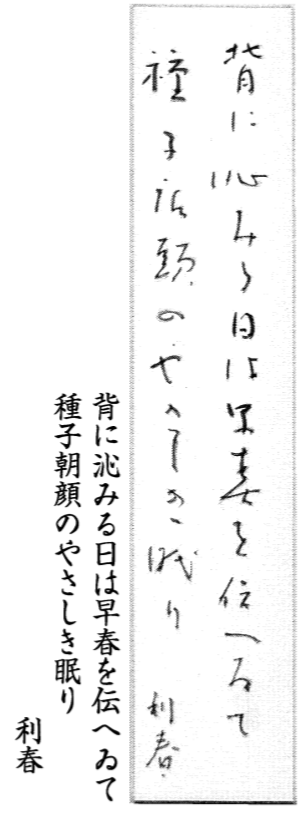 背に沁みる日は早春を伝へゐて
種子朝顔のやさしき眠り 利春
背に沁みる日は早春を伝へゐて
種子朝顔のやさしき眠り
利春